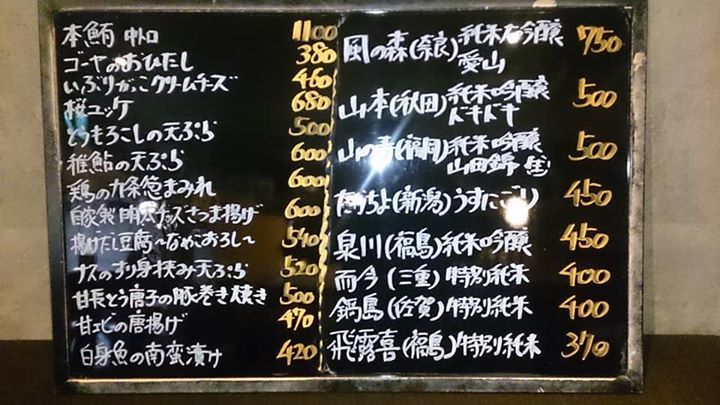 本鮪 中トロ 1100
ゴーヤのおひたし 380
いぶりがっこクリームチーズ 460
桜ユッケ 680
とうもろこしの天ぷら 500
稚鮎の天ぷら 600
鶏の九条葱まみれ 600
自家製明太チーズさつま揚げ 600
揚げだし豆腐〜なめこおろし〜 540
ナスのすり身挟み天ぷら 520
甘長とう唐子の豚巻き焼き 500
甘エビの唐揚げ 470
白身魚の南蛮漬け 420
風の森(奈良)純米大吟醸 750
愛山
山本(秋田)純米吟醸 500
ドキドキ
山の壽(福岡)純米吟醸 500
山田錦
(新潟)うすにごり 450
泉川(福島)純米吟醸 450
而今(三重)特別純米 400
鍋島(佐賀)特別純米 400
飛露喜(福島)特別純米 370